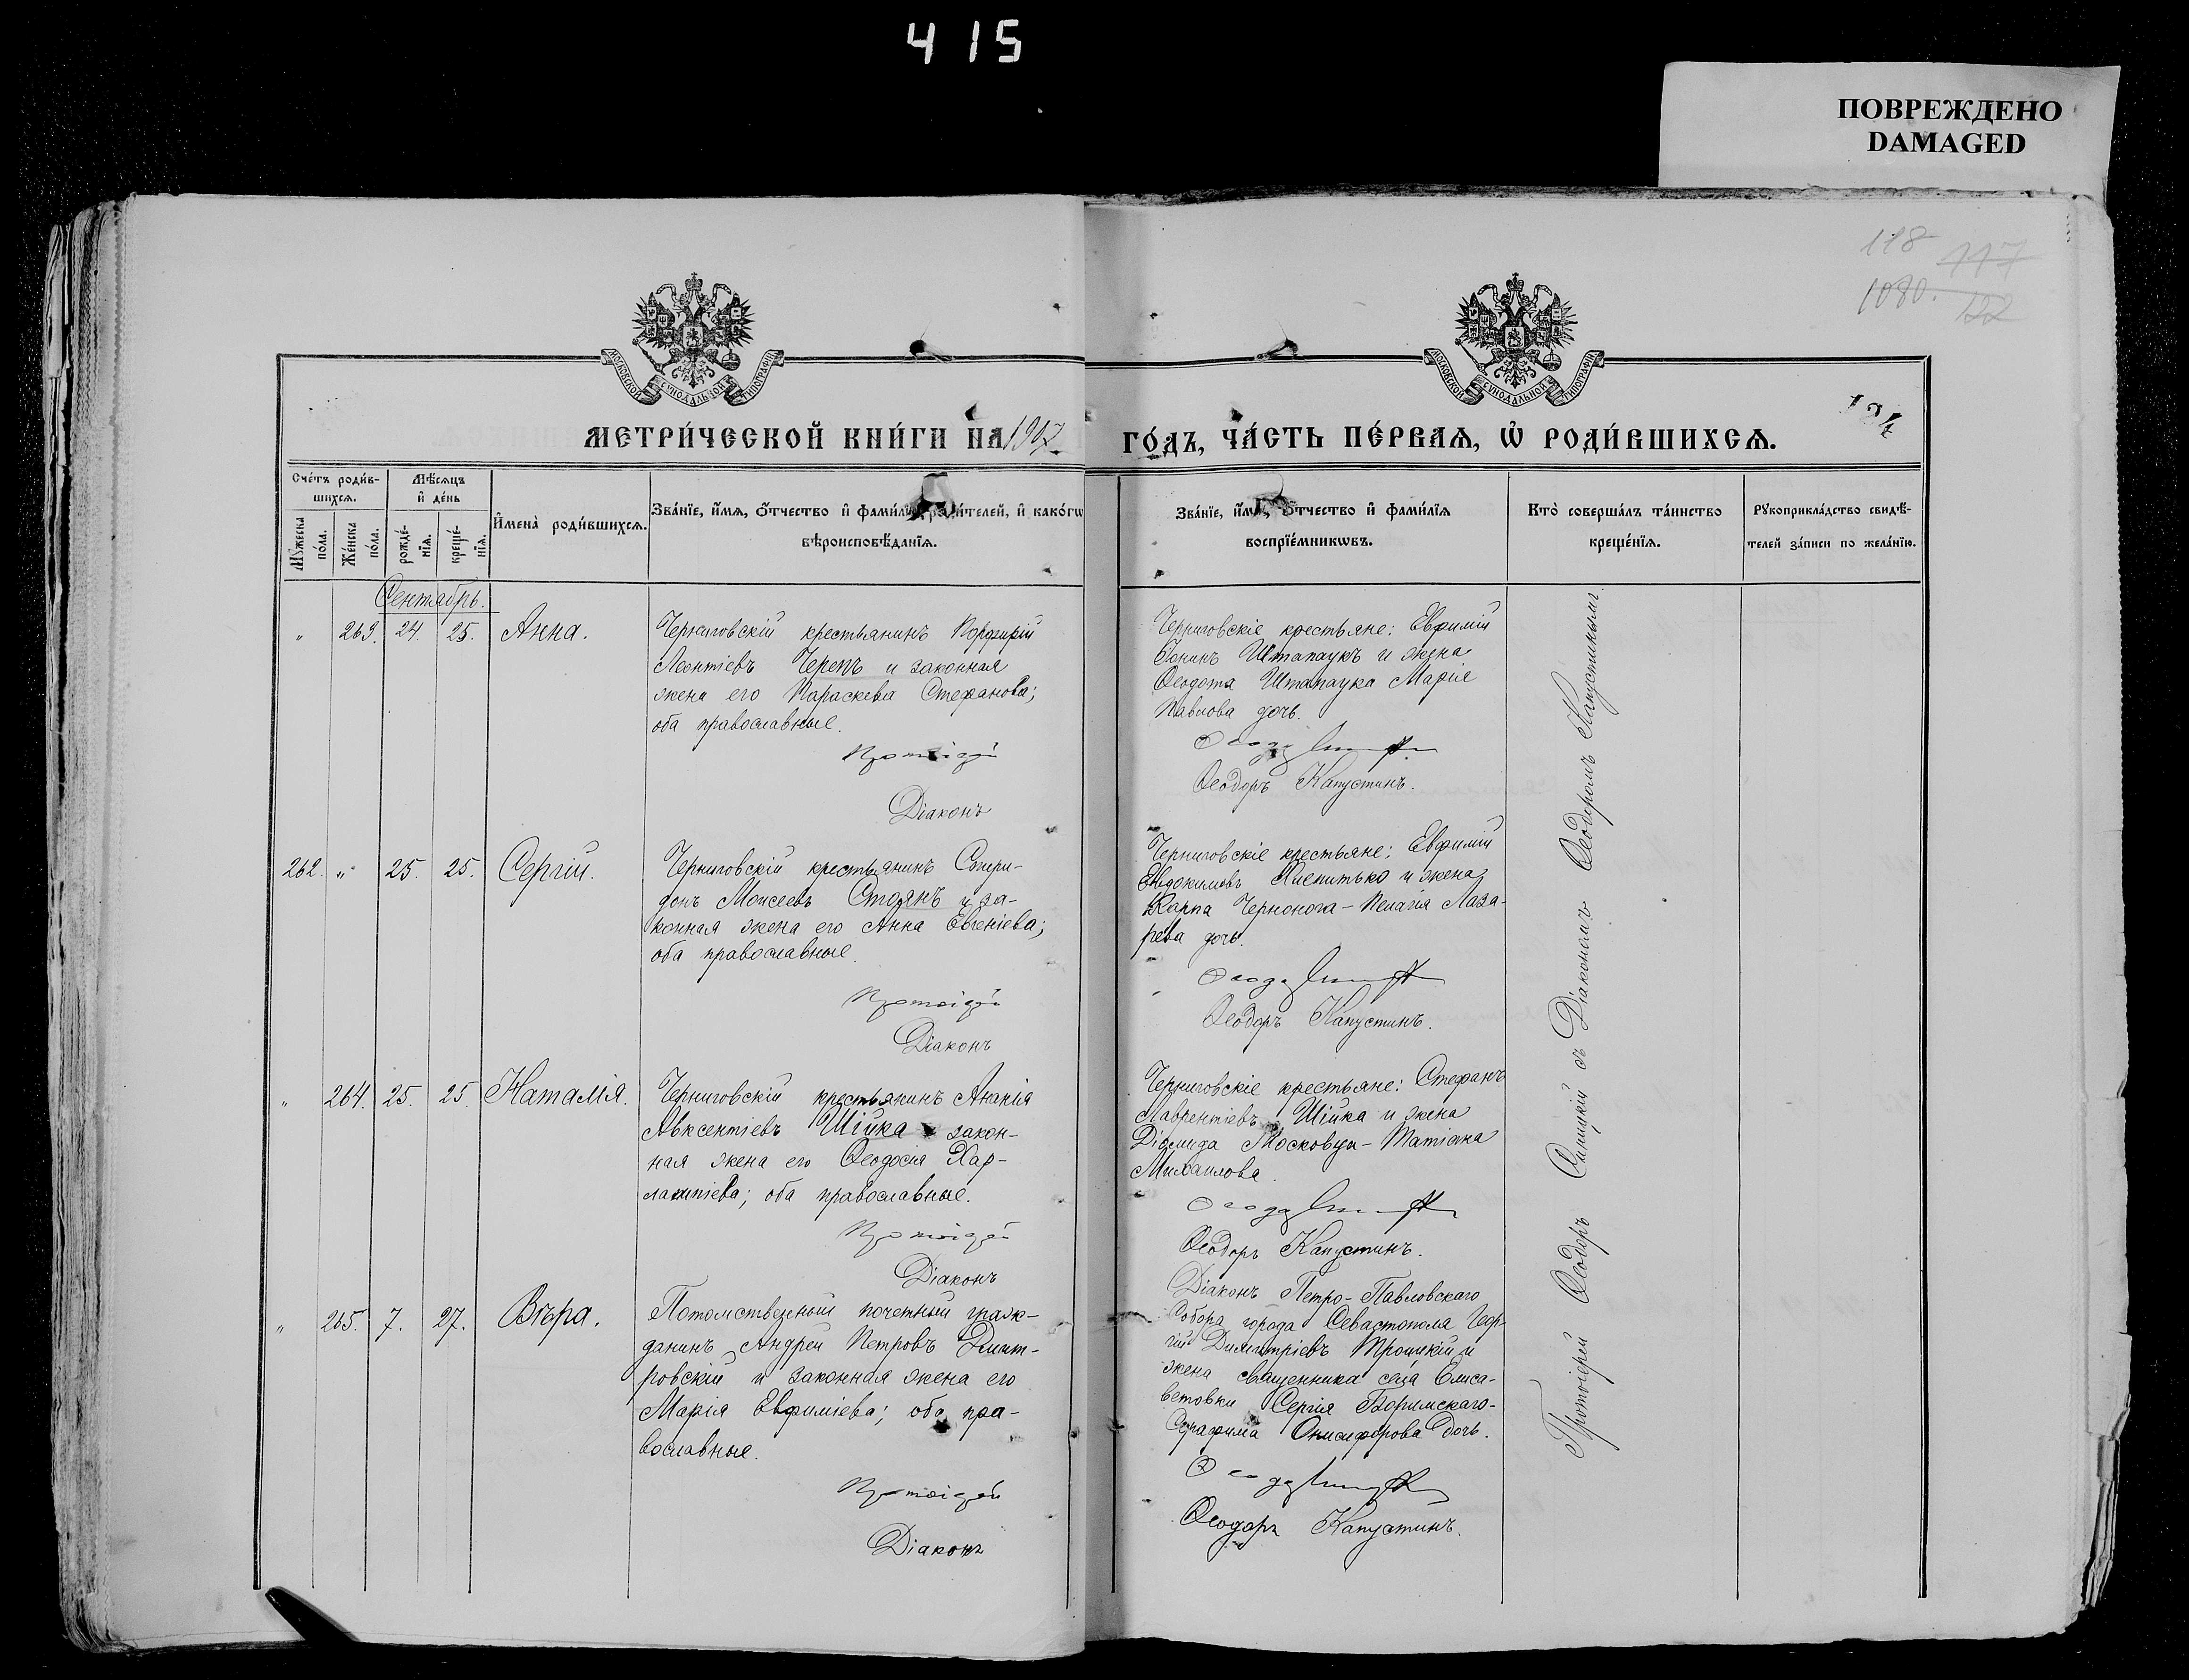 415
ПОВРЕЖДЕНО
DAMAGED
118 117
1080. 122
124
МОСКОВСКОЙ СѴНОДАЛЬНОЙ ТИПОГРАФІИ
МОСКОВСКОЙ СѴНОДАЛЬНОЙ ТИПОГРАФІИ
МЕТРИ́ЧЕСКОЙ КНИ́ГИ НА 1907 ГО́ДЪ, ЧА́СТЬ ПЕ́РВАѦ, Ѽ РОДИ́ВШИХСѦ.
Сче́тъ роди́в-
шихсѧ.
Мꙋ́жеска по́ла.
Же́нска по́ла.
Мѣ́сѧцъ
и҆ де́нь
рожде́-
нїѧ.
креще́-
нїѧ.
И҆мена̀ роди́вшихсѧ.
Зва́нїе, и҆́мѧ, ѻ҆́тчество и҆ фами́лїѧ роди́телей, и҆ како́гѡ
вѣроисповѣ́данїѧ.
Зва́нїе, и҆́мѧ, ѻ҆́тчество и҆ фами́лїѧ
воспрїе́мникѡвъ.
Кто̀ соверша́лъ та́инство
креще́нїѧ.
Рꙋкоприкла́дство свидѣ́-
телей за́писи по жела́нїю.
Сентябрь.
" 263. 24. 25. Анна.
Черниговскій крестьянинъ Порфирій
Леонтіевъ Черепъ и законная
жена его Параскева Стефанова;
оба православные.
Протоіерей
Діаконъ
Черниговскіе крестьяне: Евфимій
Штапаукъ и жена
Ѳеодота Штапаука Марія
Павлова дочь.
Ѳеодоръ Капустинъ.
262. " 25. 25. Сергій.
Черниговскій крестьянинъ Спири-
донъ Моисеевъ Стоянъ и за-
конная жена его Анна Евгеніева;
оба православные.
Протоіерей
Діаконъ
Черниговскіе крестьяне: Евфимій
Евдокимовъ и жена
Карпа Чернонога - Пелагія Лаза-
рева дочь.
Ѳеодоръ Капустинъ.
" 264. 25. 25. Наталія.
Черниговскій крестьянинъ Ананія
Авксентіевъ Шійка и закон-
ная жена его Ѳеодосія Хар-
лампіева; оба православные.
Протоіерей
Діаконъ
Черниговскіе крестьяне: Стефанъ
Лаврентіевъ Шійка и жена
Діомида Московца - Татіана
Михаилова.
Ѳеодоръ Капустинъ.
" 265. 7. 27. Вѣра.
Потомственный почетный граж-
данинъ Андрей Петровъ Дмит-
ровскій и законная жена его
Марія Евфиміева; оба пра-
вославные.
Протоіерей
Діаконъ
Діаконъ Петро-Павловскаго
Собора города Севастополя Геор-
гій Димитріевъ Троицкій и
жена священника села Елиса-
ветовки Сергія
Серафима Онисифорова дочь.
Ѳеодоръ Капустинъ.
Протоіерей Ѳеодоръ съ Діакономъ Ѳеодоромъ Капустинымъ.